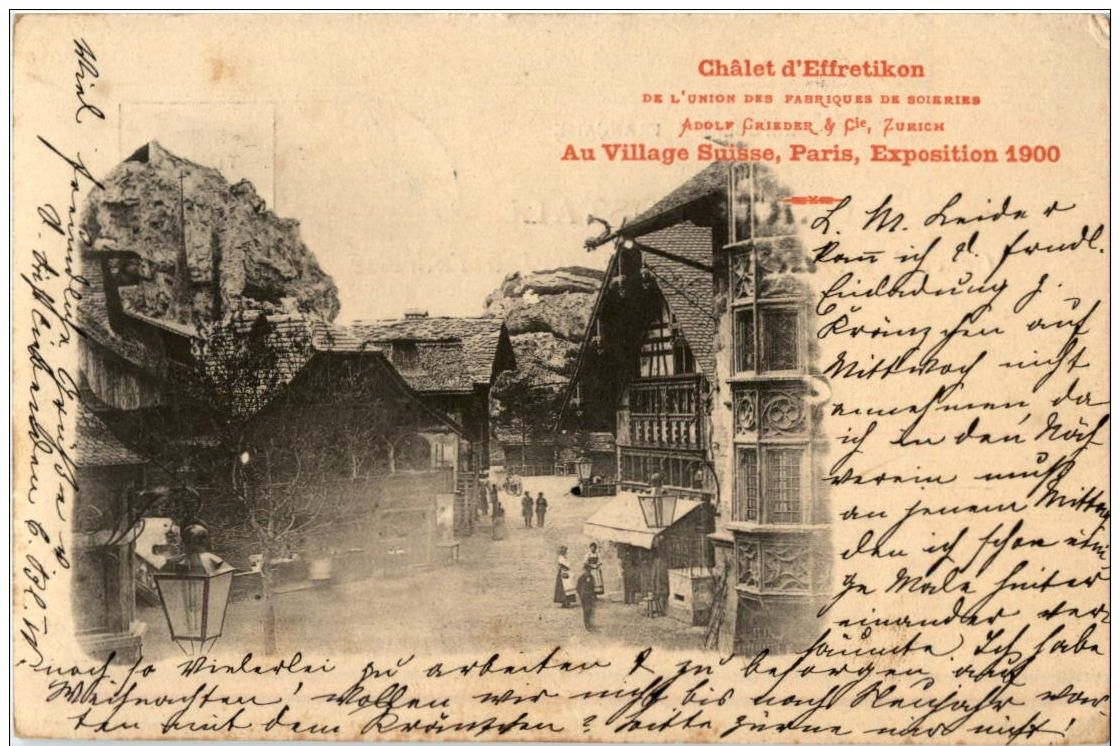 Châlet d'Effretikon
DE L'UNION DES FABRIQUES DE SOIERIES
ADOLF GRIEDER & Cie, ZURICH
Au Village Suisse, Paris, Exposition 1900
L. M. Leider
kann ich d. frndl.
Einladung z.
Kränzchen auf
Mittwoch nicht
annehmen, da
ich in den Näh
verein muß
an jenem Mittw.
den ich schon eini
ge Male hinter
einander ver
säumte. Ich habe
noch so vielerlei zu arbeiten & zu besorgen auf
Weihnachten! wollen wir nicht bis nach Neujahr war
ten mit dem Kränzchen? bitte zürne mir nicht!
Viel freundliche Grüße